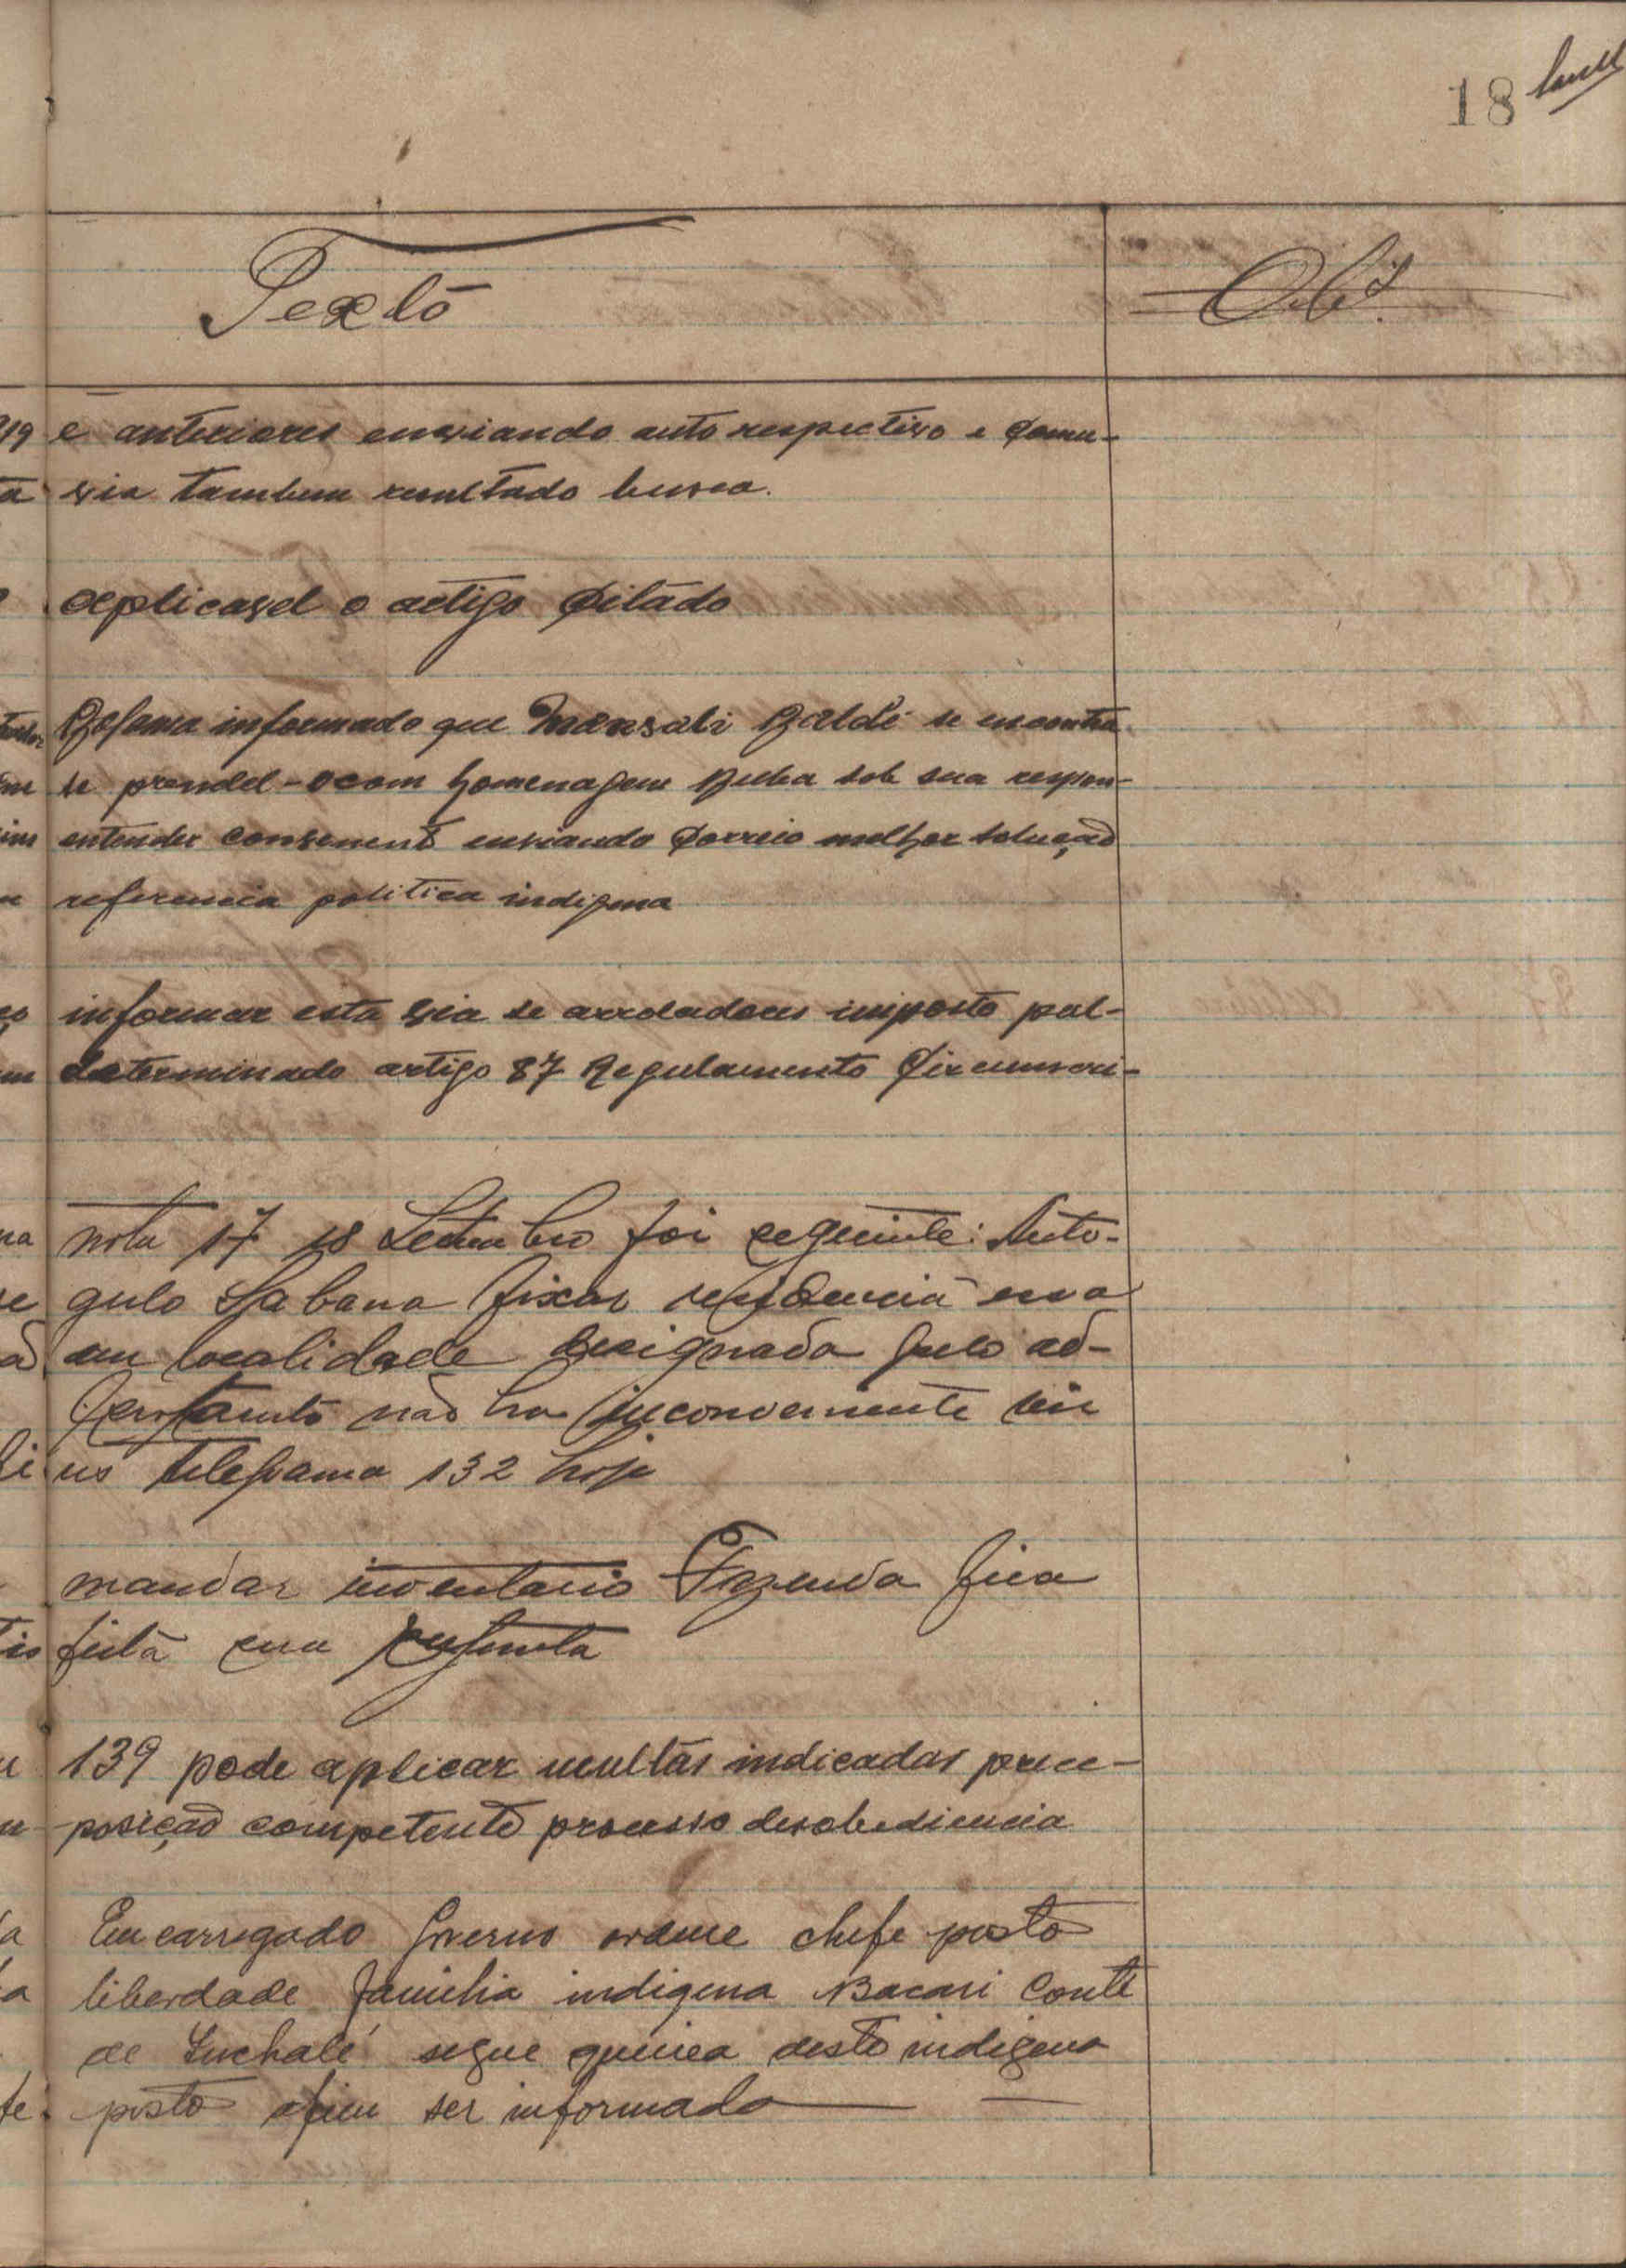 18
Texto
Obs.
e anteriores enviando auto respectivo e comu-
via tambem resultado busca.
Applicavel o artigo citado
informado que Mansali Baldé se encontra
se prendel-o com homenagem sob sua respon-
entender conveniente enviando correio melhor solução
referencia politica indigena
informar esta via se arroladores imposto pal-
determinado artigo 87 Regulamento Circunscri-
nota 17 18 Setembro foi seguinte: Auto-
gulo Sabana fixar residencia essa
em localidade designada pelo ad-
não ha inconveniente
telegrama 132 hoje
mandar inventario Fazenda fica
feita sua pergunta
139 pode aplicar multas indicadas
posição competente processo desobediencia
Encarregado Governo ordene chefe posto
liberdade familia indigena Bacari Conté
de segue deste indigena
posto afim ser informado